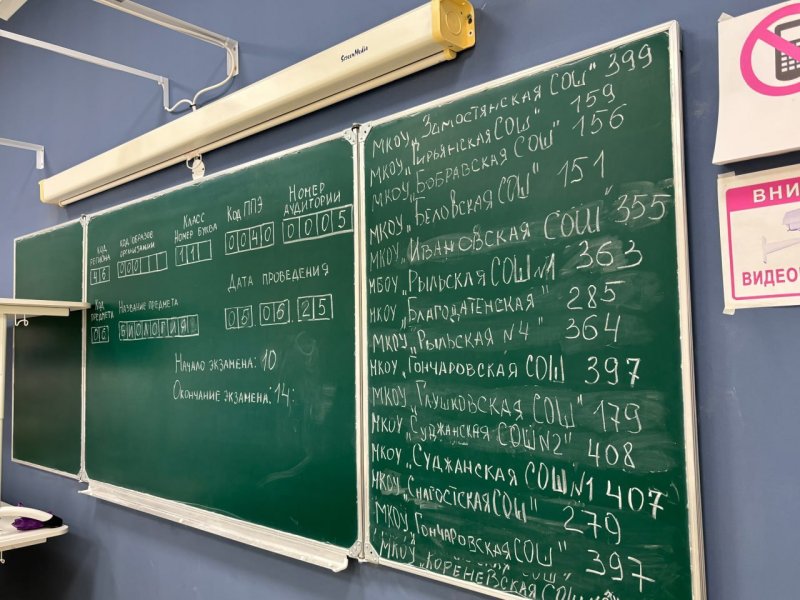 ScreenMedia
КОД РЕГИОНА
46
КОД ОБРАЗОВ. ОРГАНИЗАЦИИ
000
КЛАСС НОМЕР БУКВА
11
КОД ППЭ
0040
НОМЕР АУДИТОРИИ
0005
КОД ПРЕДМЕТА
06
НАЗВАНИЕ ПРЕДМЕТА
БИОЛОГИЯ
ДАТА ПРОВЕДЕНИЯ
05.06.25
НАЧАЛО ЭКЗАМЕНА: 10
ОКОНЧАНИЕ ЭКЗАМЕНА: 14:
МКОУ „Замостянская СОШ" 399
МКОУ „Гирьянская СОШ" 159
МКОУ „Бобравская СОШ" 156
МКОУ „Беловская СОШ" 151
МКОУ „Ивановская СОШ" 355
МБОУ „Рыльская СОШ N1 363
МКОУ „Благодатенская" 285
МКОУ „Рыльская N4" 364
МКОУ „Гончаровская СОШ 397
МКОУ „Глушковская СОШ" 179
МКОУ „Суджанская СОШ N2" 408
МКОУ „Суджанская СОШ N1 407
МКОУ „Снагостская СОШ" 279
МКОУ „Гончаровская СОШ" 397
МКОУ „Кореневская СОШ
ВНИ
ВИДЕО